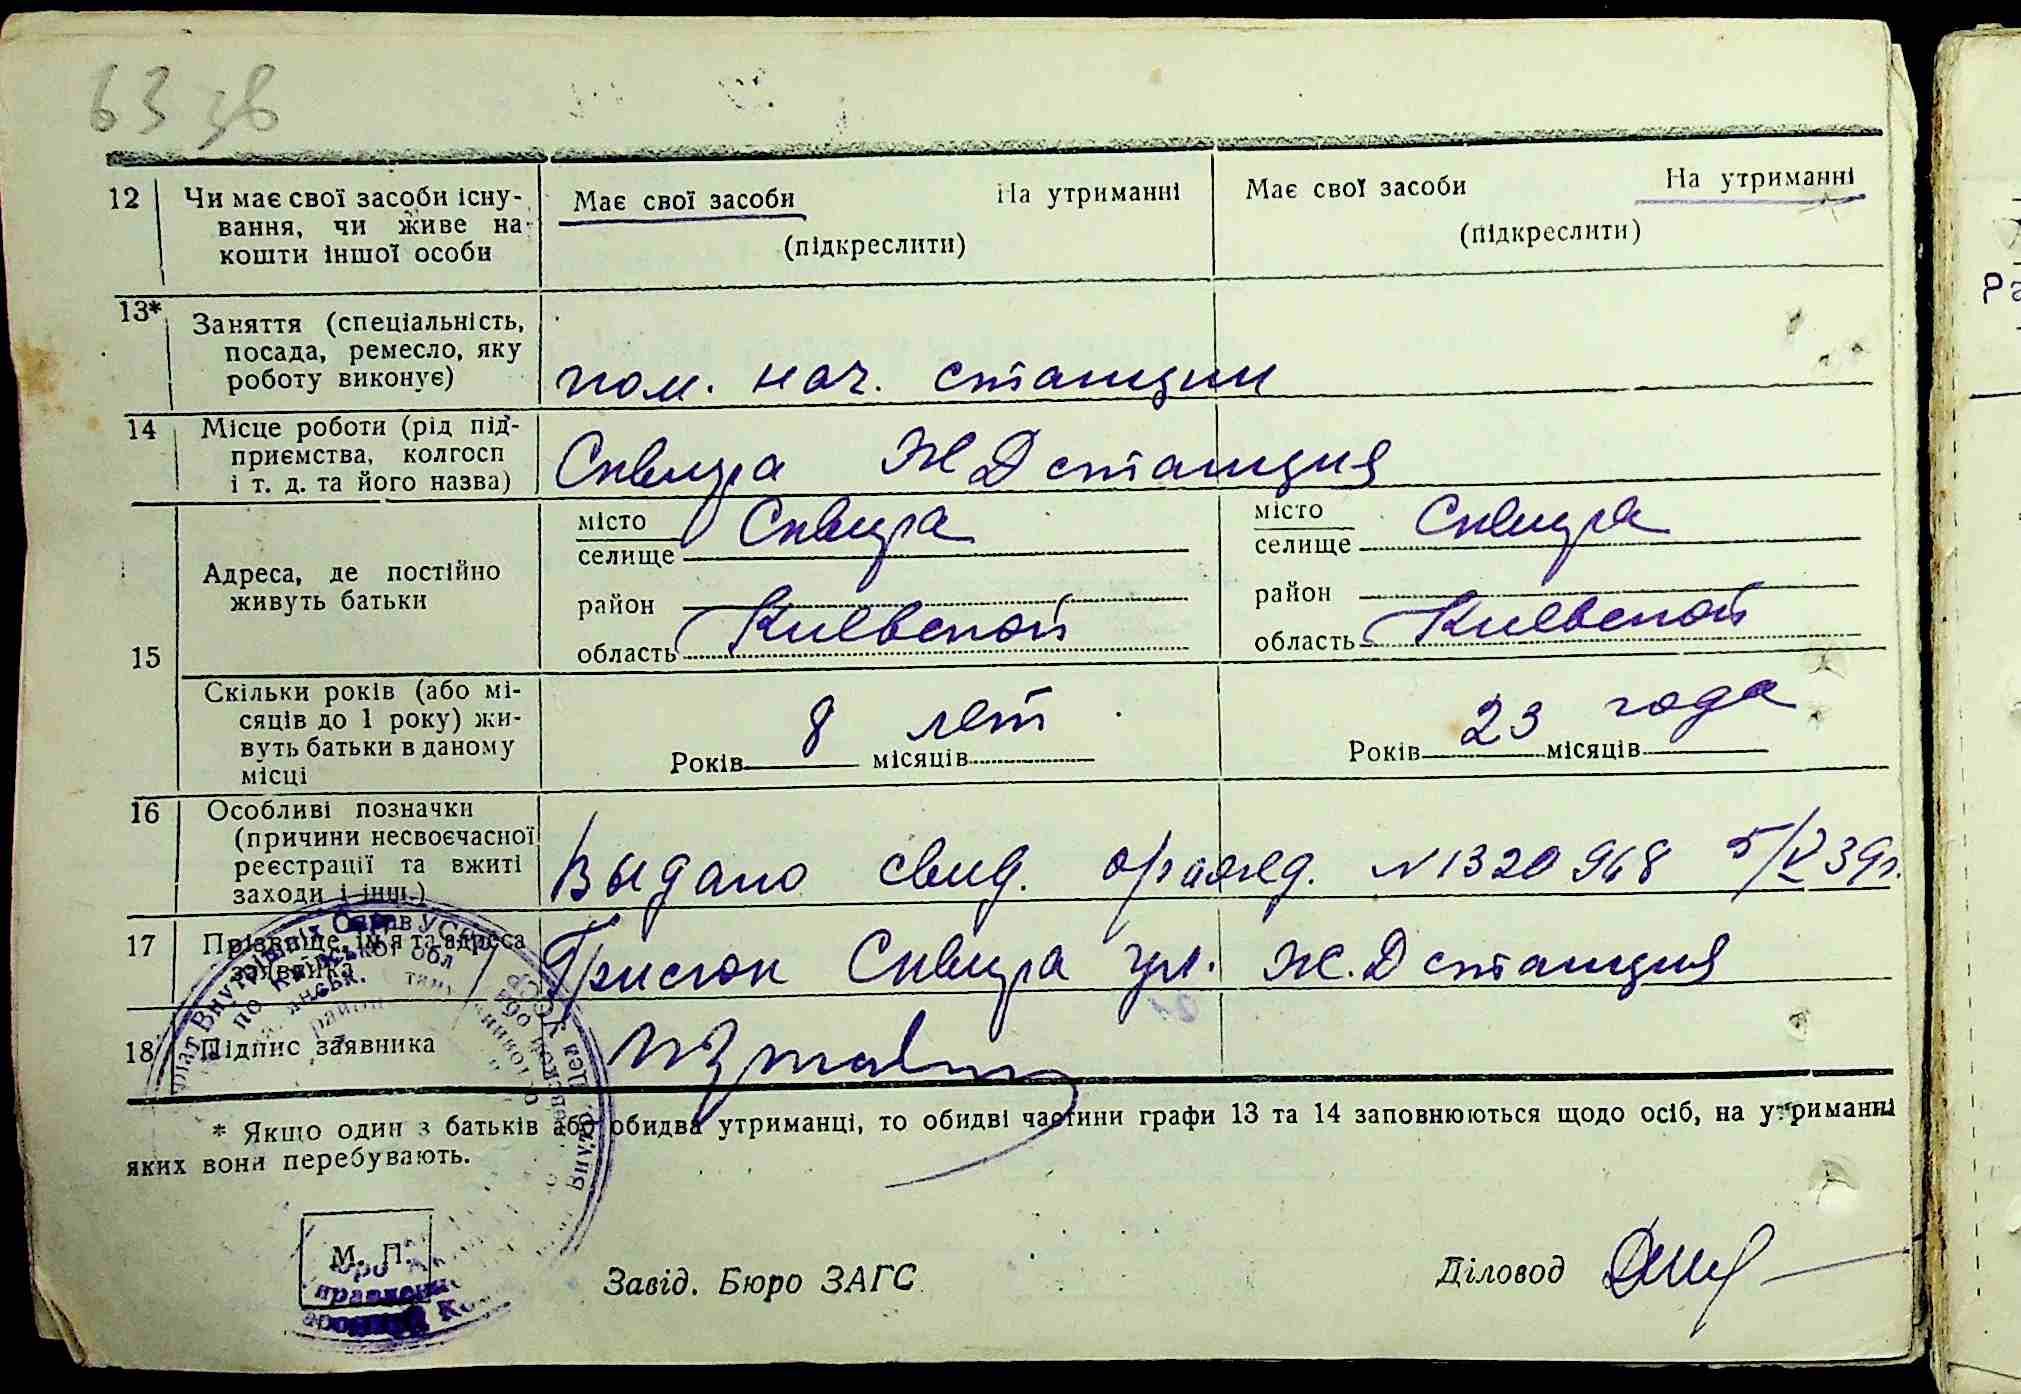 63 зв
12 Чи має свої засоби існу-
вання, чи живе на
кошти іншої особи
Має свої засоби На утриманні
(підкреслити)
Має свої засоби На утриманні
(підкреслити)
13* Заняття (спеціальність,
посада, ремесло, яку
роботу виконує)
пом. нач. станции
14 Місце роботи (рід під-
приємства, колгосп
і т. д. та його назва)
Сквира Ж Д станция
15 Адреса, де постійно
живуть батьки
місто Сквира
селище
район
область Киевской
місто Сквира
селище
район
область Киевской
Скільки років (або мі-
сяців до 1 року) жи-
вуть батьки в даному
місці
Років 8 лет місяців
Років 23 года місяців
16 Особливі позначки
(причини несвоєчасної
реєстрації та вжиті
заходи і інш.)
Выдано свид. о рожд. N 1320968 5/V 39г.
17 Прізвище, ім'я та адреса
заявника
Сквира ул. Ж. Д станция
18 Підпис заявника
* Якщо один з батьків або обидва утриманці, то обидві частини графи 13 та 14 заповнюються щодо осіб, на утриманні
яких вони перебувають.
М. П.
Завід. Бюро ЗАГС
Діловод